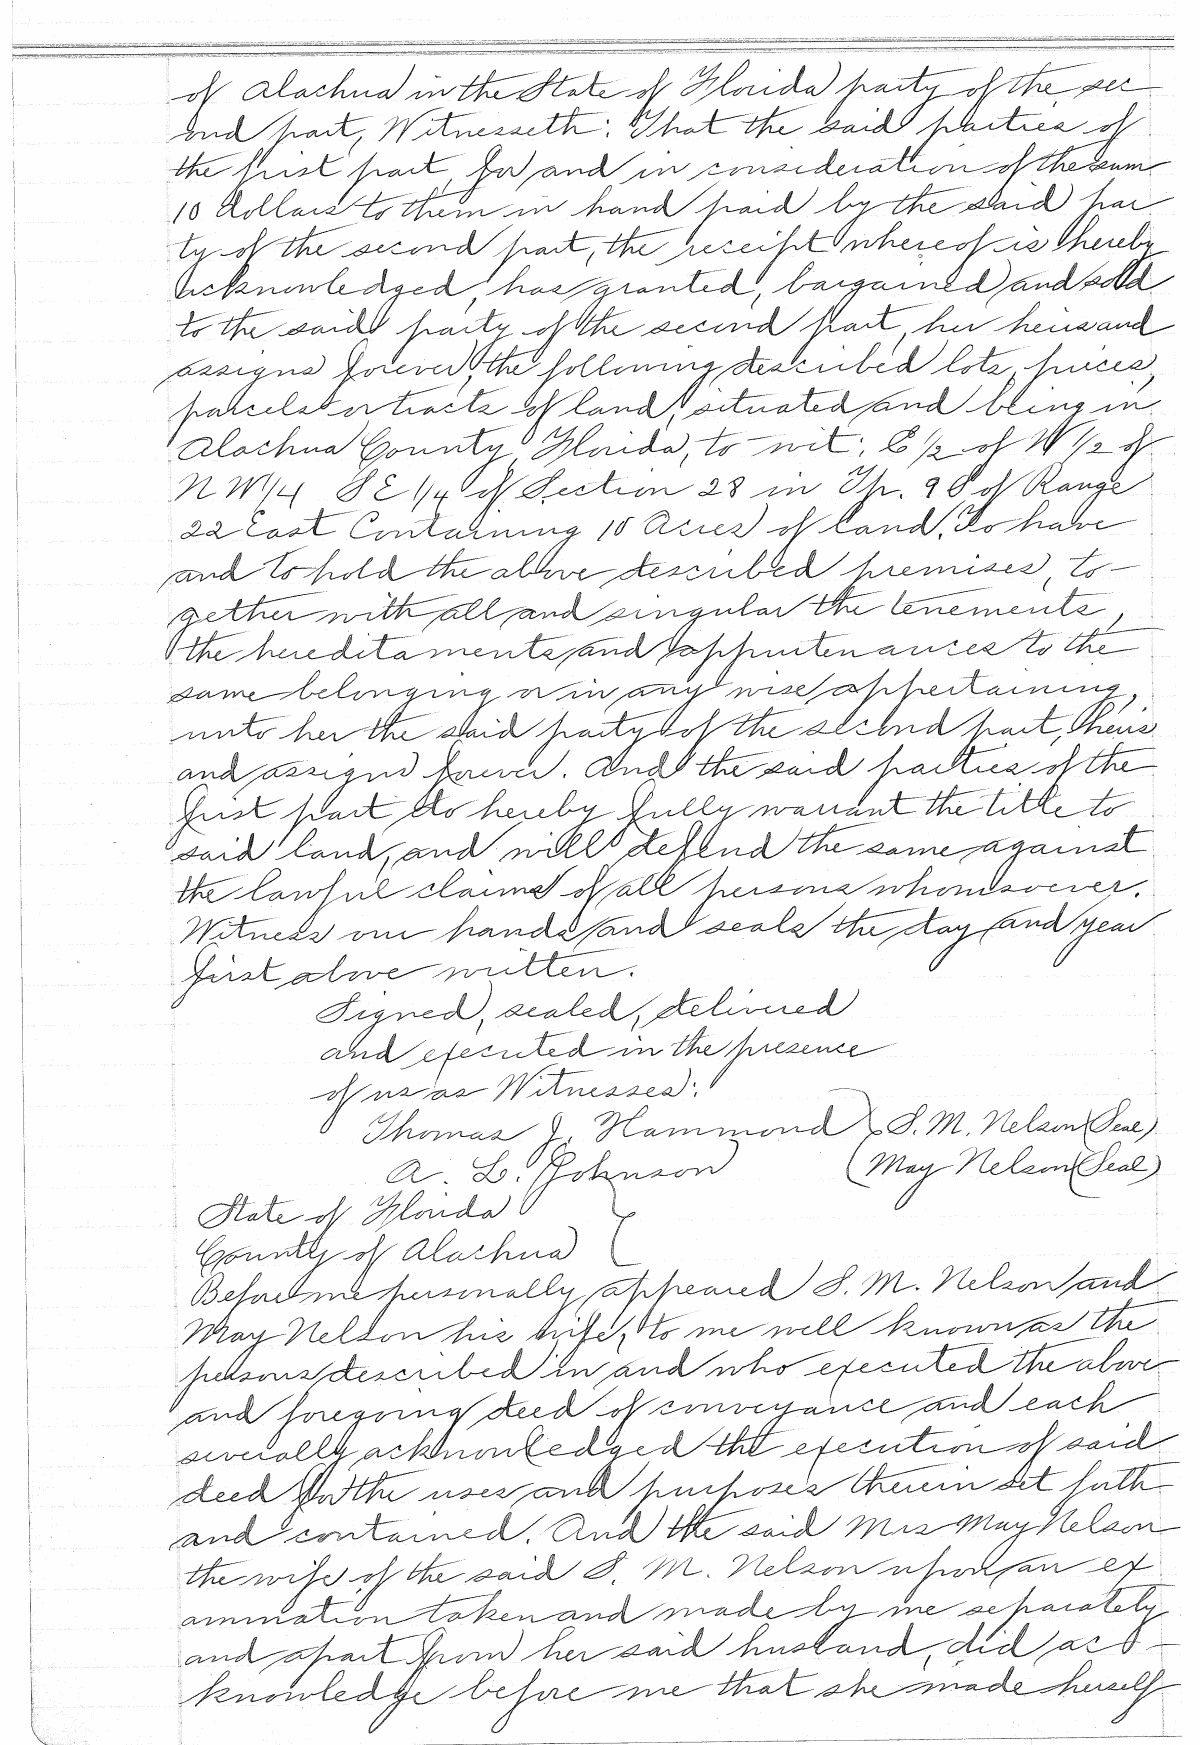 of Alachua in the State of Florida party of the sec
ond part, Witnesseth: That the said parties of
the first part, for and in consideration of the sum
10 dollars to them in hand paid by the said par
ty of the second part, the receipt whereof is hereby
acknowledged, has granted, bargained and sold
to the said party of the second part, her heirs and
assigns forever, the following described lots, pieces,
parcels or tracts of land, situated and being in
Alachua County, Florida, to wit: E 1/2 of W 1/2 of
NW 1/4 SE 1/4 of Section 28 in Tp. 9 S of Range
22 East Containing 10 Acres of land. To have
and to hold the above described premises, to-
gether with all and singular the tenements,
the hereditaments and appurtenances to the
same belonging or in any wise appertaining,
unto her the said party of the second part, heirs
and assigns forever. And the said parties of the
first part do hereby fully warrant the title to
said land, and will defend the same against
the lawful claims of all persons whomsoever.
Witness our hands and seals the day and year
first above written.
Signed, sealed, delivered
and executed in the presence
of us as Witnesses:
Thomas J. Hammond } S. M. Nelson (Seal)
A. L. Johnson ( May Nelson (Seal)
State of Florida
County of Alachua }
Before me personally appeared S. M. Nelson and
May Nelson his wife, to me well known as the
persons described in and who executed the above
and foregoing deed of conveyance and each
severally acknowledged the execution of said
deed for the uses and purposes therein set forth
and contained. And the said Mrs May Nelson
the wife of the said S. M. Nelson upon an ex
amination taken and made by me separately
and apart from her said husband, did ac-
knowledge before me that she made herself